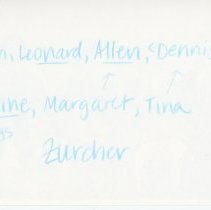 n, Leonard, Allen, Denni
ine, Margaret, Tina
gs
Zurcher